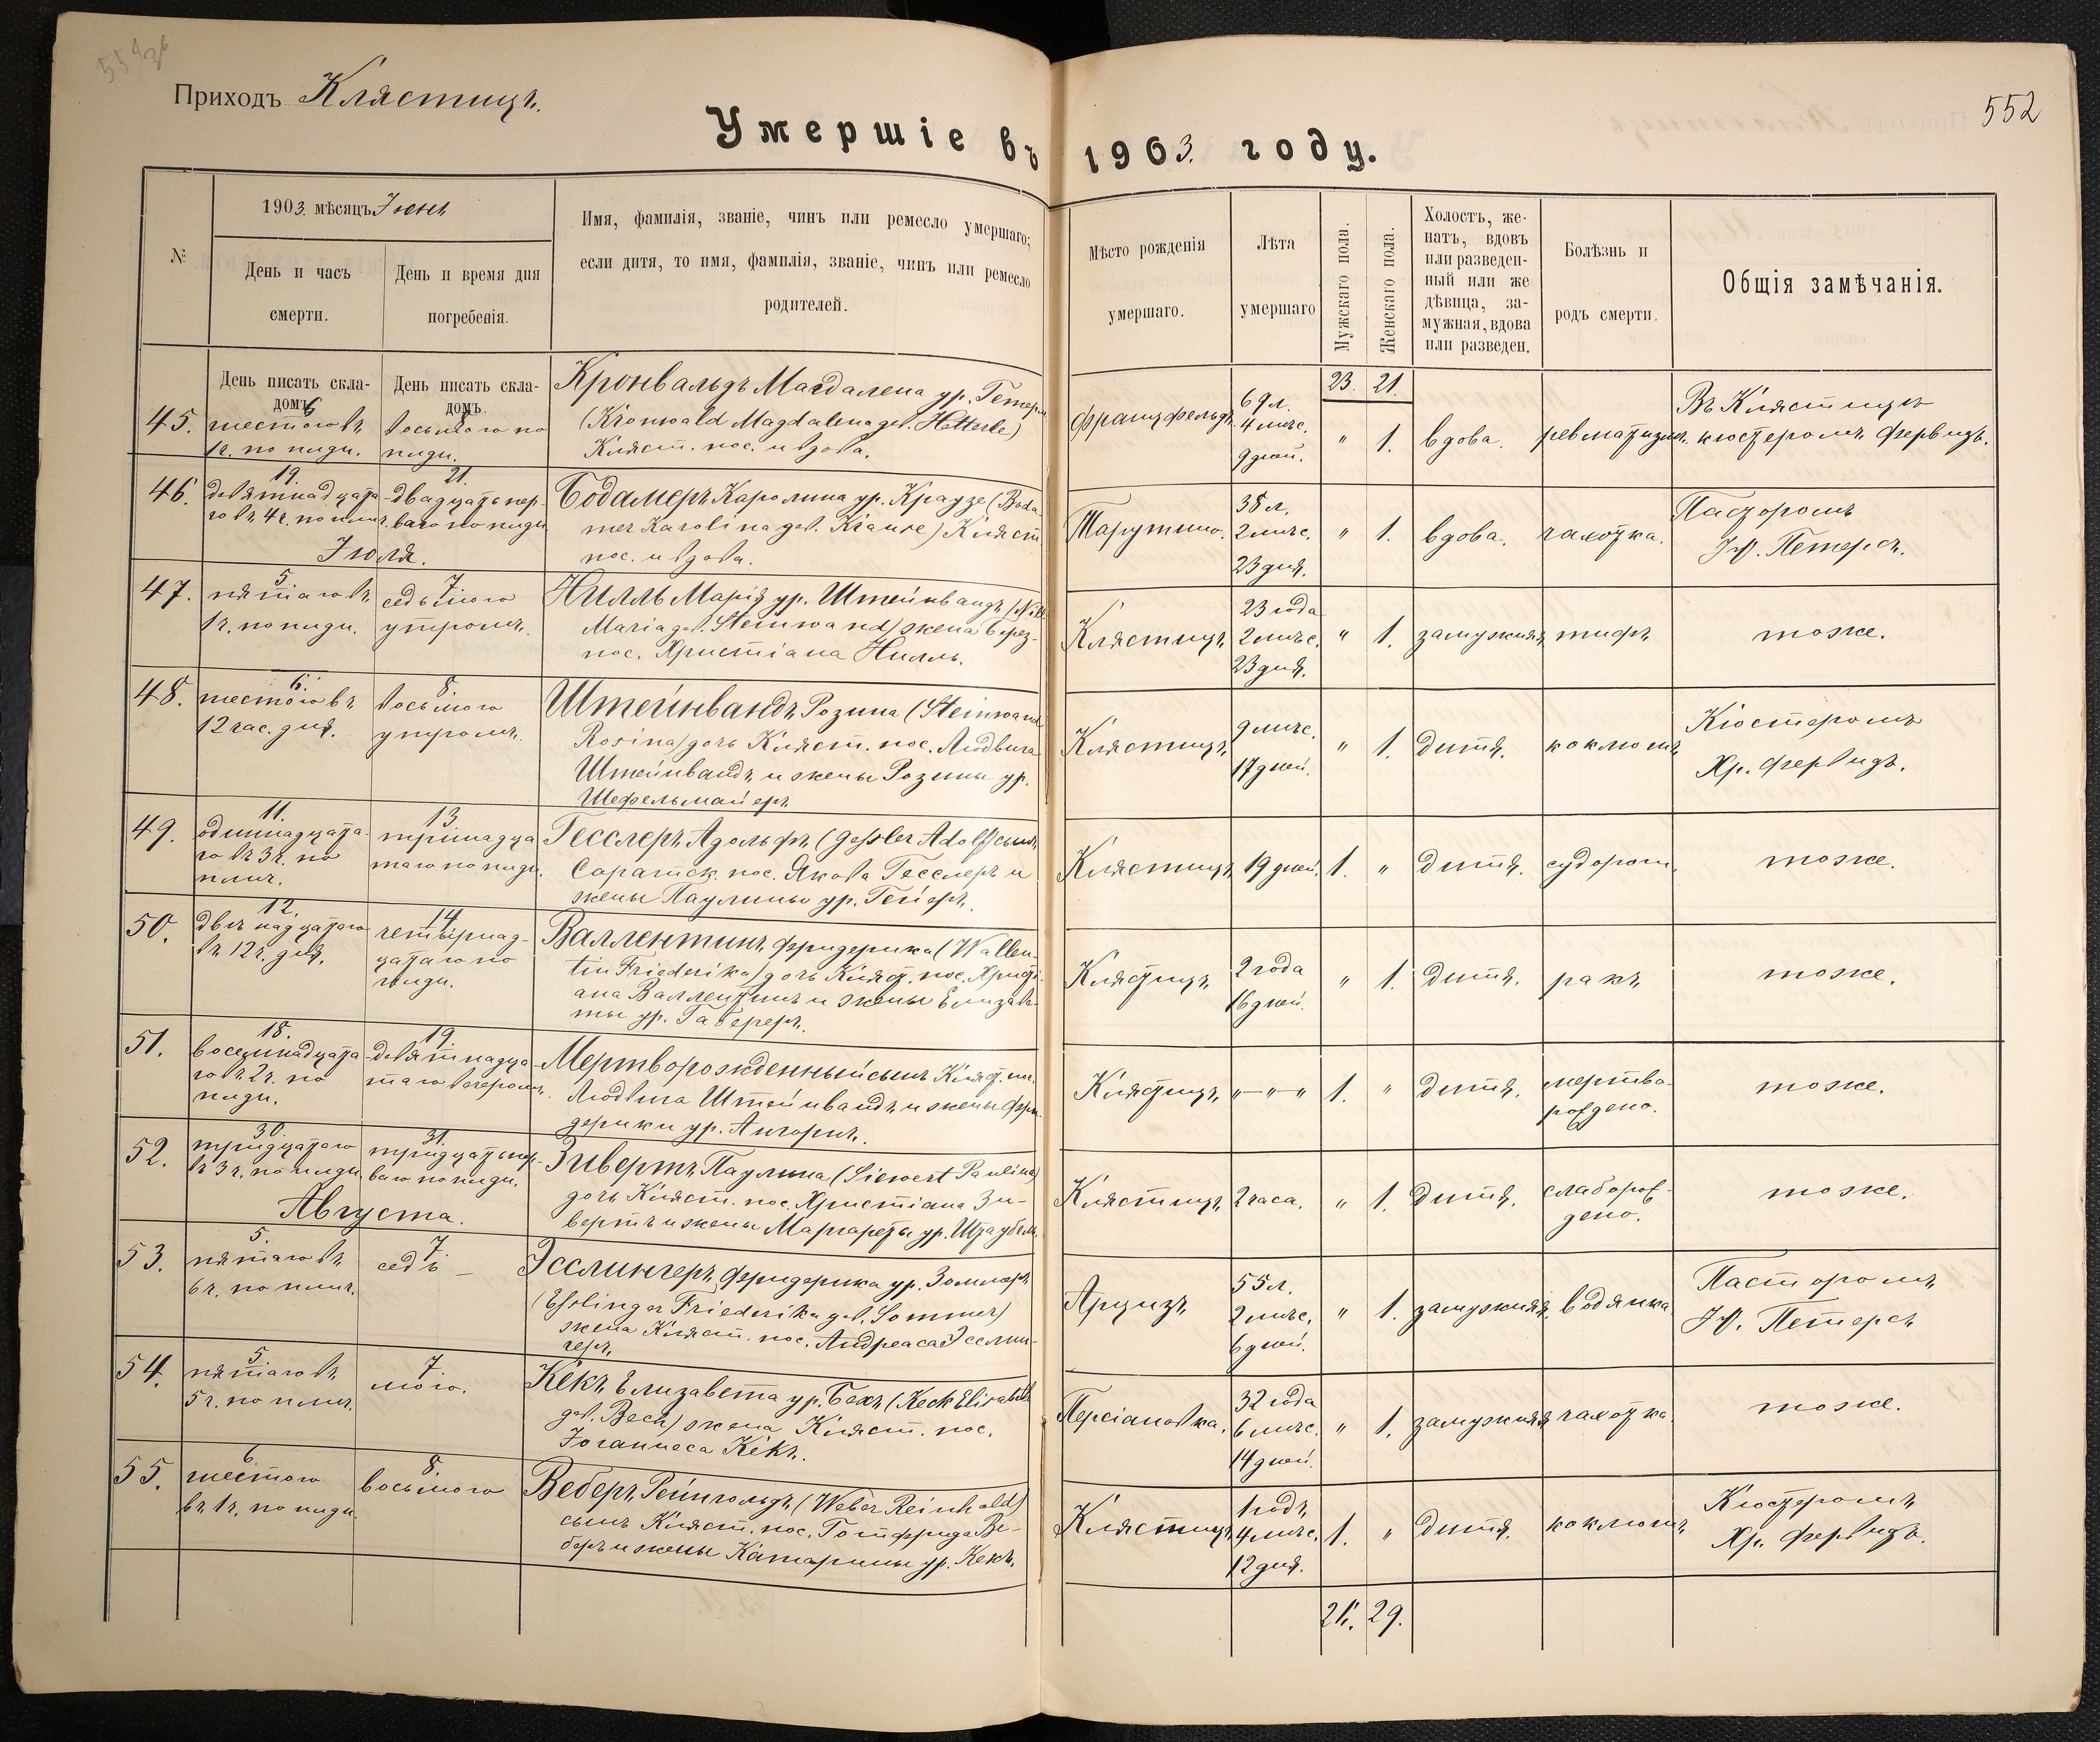 Приходъ Клястицъ.
552
Умершіе въ 1903. году.
№
1903. мѣсяцъ Іюнь
День и часъ
смерти.
День и время дня
погребенія.
Имя, фамилія, званіе, чинъ или ремесло умершаго;
если дитя, то имя, фамилія, званіе, чинъ или ремесло
родителей.
Мѣсто рожденія
умершаго.
Лѣта
умершаго
Мужскаго пола.
Женскаго пола.
Холостъ, же-
натъ, вдовъ
или разведен-
ный или же
дѣвица, за-
мужная, вдова
или разведен.
Болѣзнь и
родъ смерти.
Общія замѣчанія.
День писать скла-
домъ.
День писать скла-
домъ.
23. 21.
45.
6
шестого въ
1ч. по плдн.
8
восьмого по
плдн.
Кронвальдъ Магдалена ур. Гетерле
(Kronwald Magdalena geb. Hetterle)
Кляст. пос. и вдова.
Францфельдъ
69л.
4 мѣс.
9 дней.
" 1.
вдова.
ревматизмъ.
Въ Клястицѣ
кюстеромъ Фервидъ.
46.
19.
девятнадцата-
го въ 4ч. по плнч.
21.
двадцать пер-
ваго по плдн.
Бодамеръ Каролина ур. Краузе (Boda-
mer Karolina geb. Krause) Кляст.
пос. и вдова.
Тарутино.
38 л.
2 мѣс.
23 дня.
" 1.
вдова.
чахотка.
Пасторомъ
Іѳ. Петерсъ.
Іюля.
47.
5.
пятаго въ
1ч. по плдн.
7.
седьмого
утромъ.
Нилль Марія ур. Штейнвандъ (Nill
Maria geb. Steinwand) жена Берез.
пос. Христіана Нилль.
Клястицъ
23 года
2 мѣс.
23 дня.
" 1.
замужняя
тифъ
тоже.
48.
6.
шестого въ
12 час. дня.
8.
восьмого
утромъ.
Штейнвандъ Розина (Steinwand
Rosina) дочь Кляст. пос. Людвига
Штейнвандъ и жены Розины ур.
Шефельмайеръ
Клястицъ
9 мѣс.
17 дней.
" 1.
дитя.
коклюшъ
Кюстеромъ
Хр. Фервидъ.
49.
11.
одиннадцата-
го въ 3ч. по
плнч.
13.
тринадца
таго по плдн.
Гесслеръ Адольфъ (Gessler Adolf) сынъ
Саратск. пос. Якова Гесслеръ и
жены Паулины ур. Гейеръ.
Клястицъ
19 дней.
1. "
дитя.
судороги.
тоже.
50.
12.
двѣнадцатаго
въ 12ч. дня.
14.
четырнад-
цатаго по
плдн.
Валлентинъ Фридерика (Wallen-
tin Friederika) дочь Кляст. пос. Христі-
ана Валлентинъ и жены Елизаве-
ты ур. Габереръ.
Клястицъ
2 года
16 дней.
" 1.
дитя.
ракъ
тоже.
51.
18.
восемнадцата-
го въ 2ч. по
плдн.
19.
девятнадца
таго вечеромъ.
Мертворожденный сынъ Кляст. пос.
Людвига Штейнвандъ и жены Фри-
дерики ур.
Клястицъ
"—"—"
1. "
дитя.
мертво-
рождено.
тоже.
52.
30.
тридцатаго
въ 3ч. по плдн.
31.
тридцать пер-
ваго по плдн.
Зивертъ Паулина (Siewert Paulina)
дочь Кляст. пос. Христіана Зи-
вертъ и жены Маргареты ур. Штаубель
Клястицъ
2 часа.
" 1.
дитя.
слаборож-
дено.
тоже.
Августа.
53.
5.
пятаго въ
6ч. по плнч.
7.
седь —
Эсслингеръ Фридерика ур. Зоммеръ
(Esslinger Friederika geb. Sommer)
жена Кляст. пос. Андреаса Эсслин-
геръ.
Арцизъ
55 л.
2 мѣс.
6 дней.
" 1.
замужняя
водянка
Пасторомъ
Іѳ. Петерсъ
54.
5.
пятаго въ
5ч. по плнч.
7.
мого.
Кекъ Елизавета ур. Бехъ (Keck Elisabeth
geb. Bech) жена Кляст. пос.
Іоганнеса Кекъ.
Персіановка.
32 года
6 мѣс.
14 дней.
" 1.
замужняя
чахотка.
тоже.
55.
6.
шестого
въ 1ч. по плдн.
8.
восьмого
Веберъ Рейнгольдъ (Weber Reinhold)
сынъ Кляст. пос. Готфрида Ве-
беръ и жены Катарины ур. Кекъ.
Клястицъ
1 годъ
4 мѣс.
12 дня.
1. "
дитя.
коклюшъ
Кюстеромъ
Хр. Фервидъ.
26. 29.